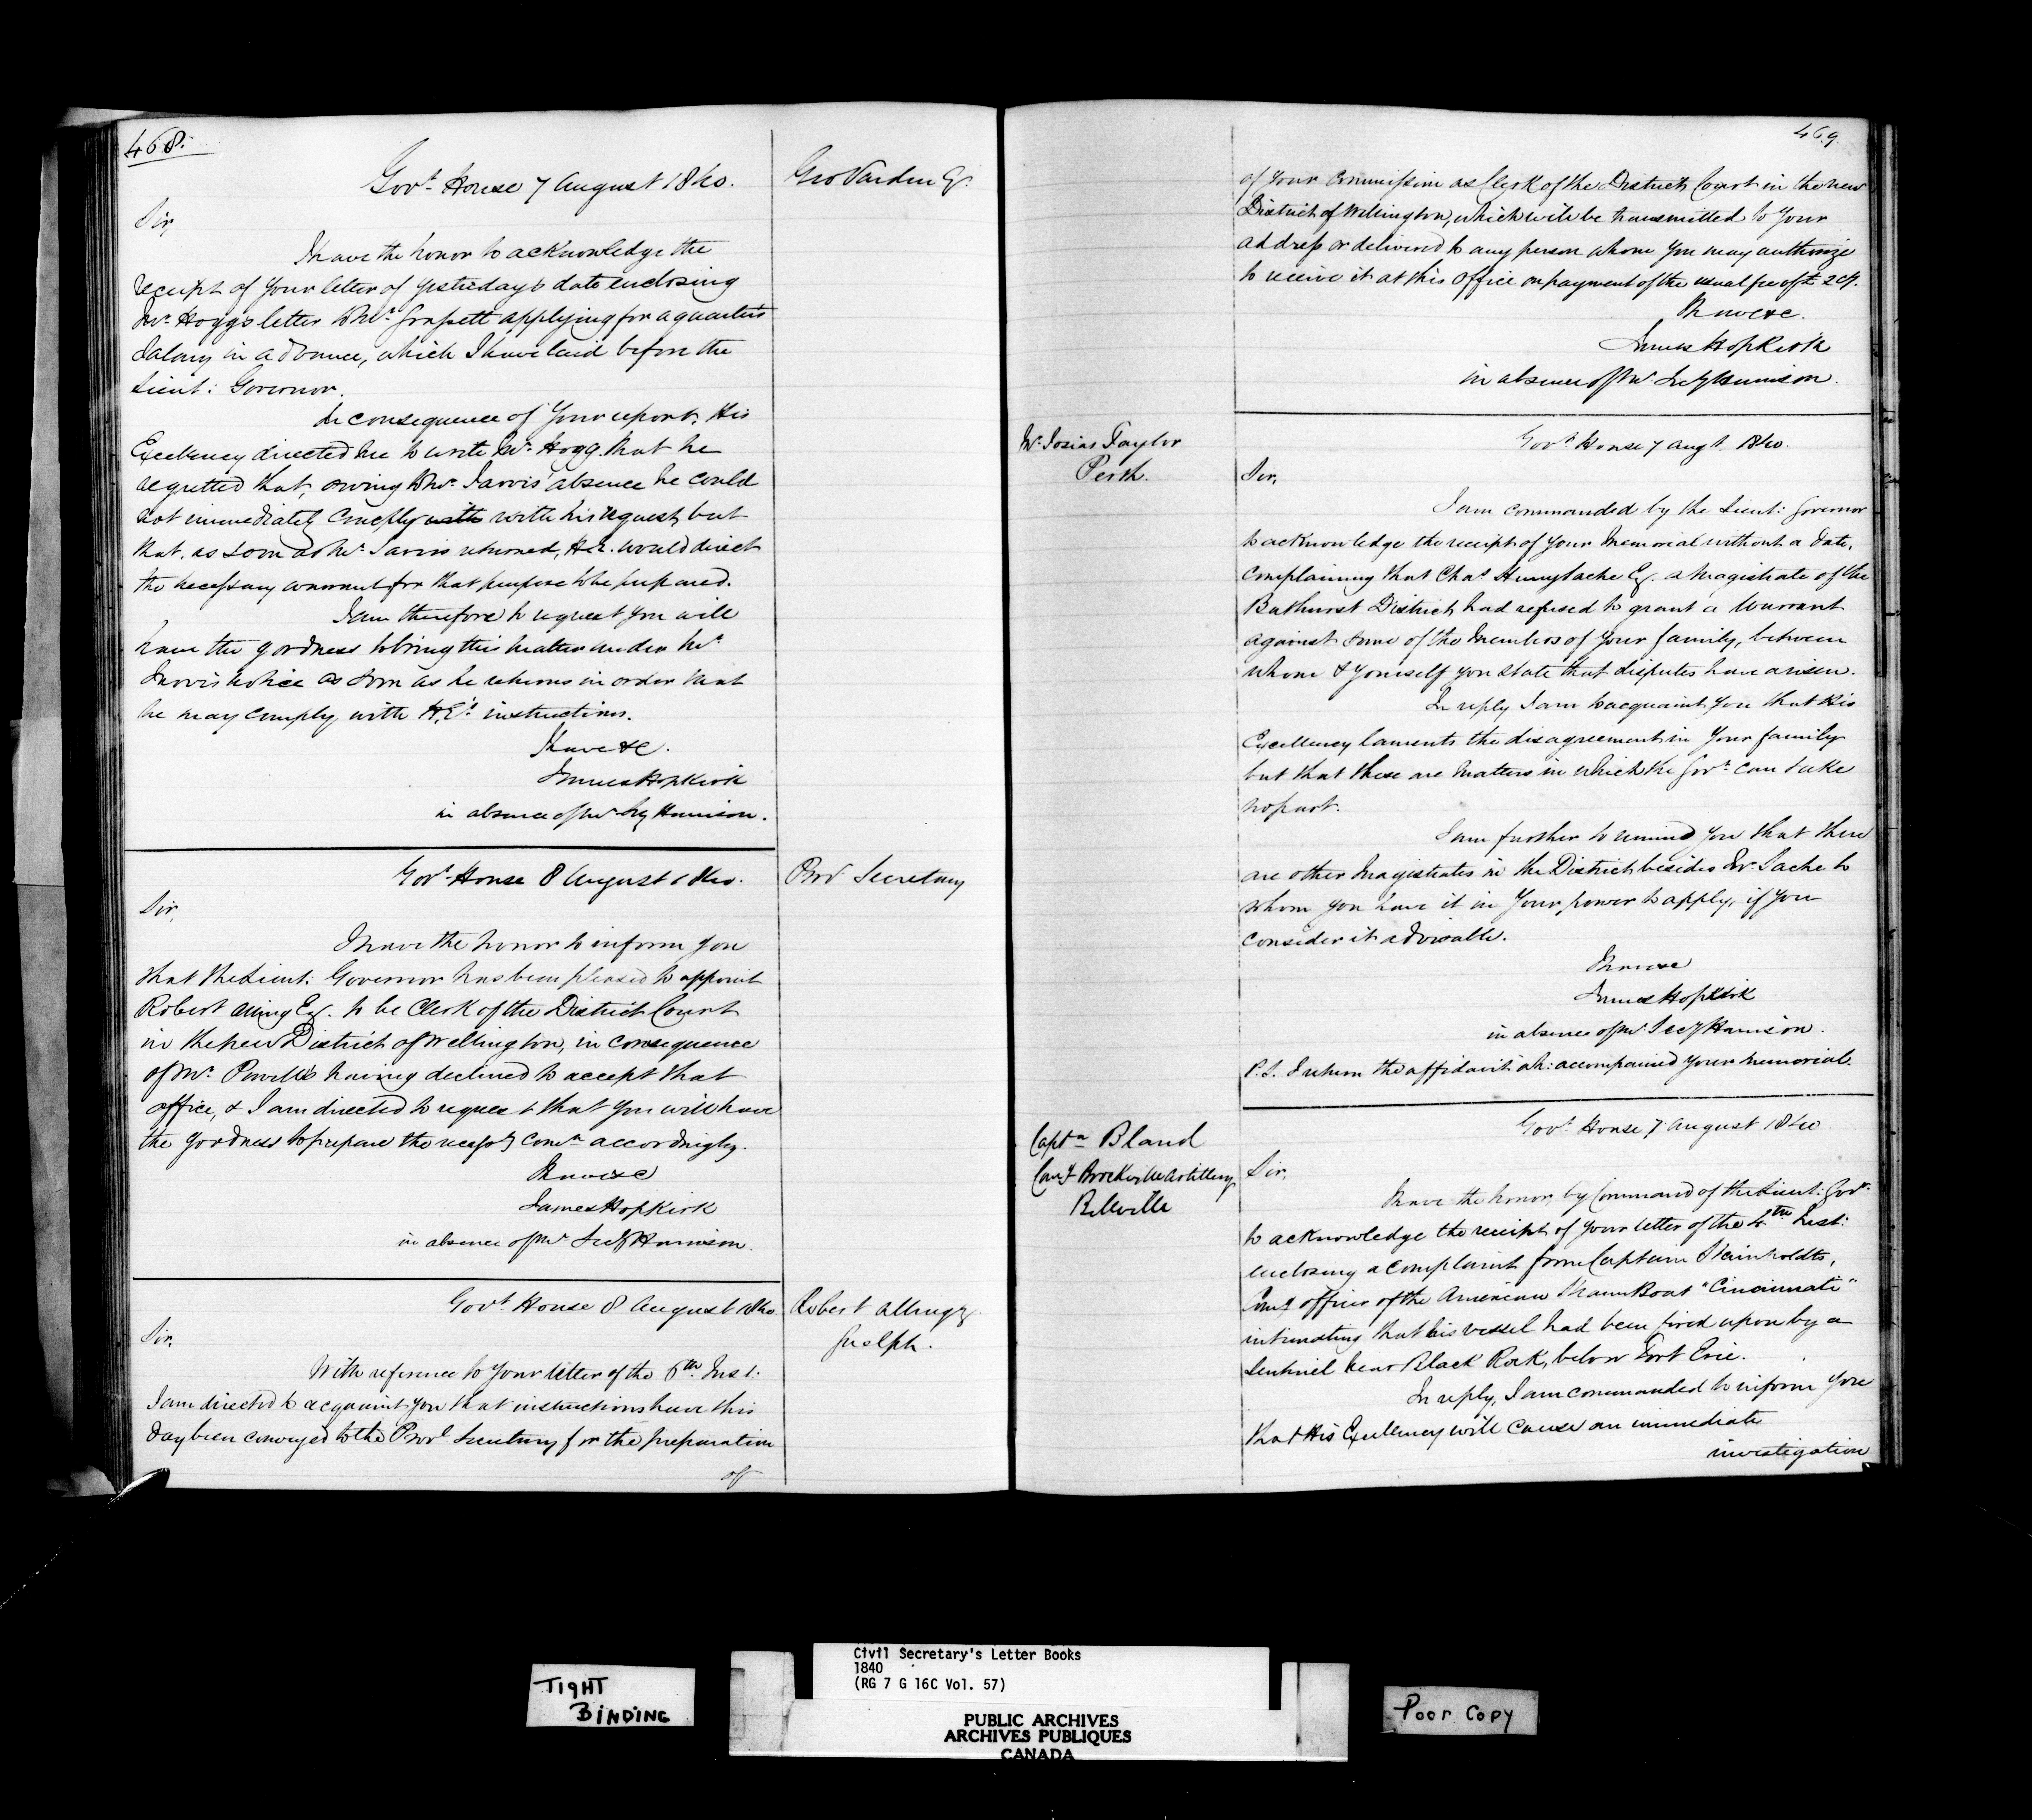 468.
Govt. House 7 August 1840.
Geo Vardon Esqr.
Sir,
I have the honor to acknowledge the
receipt of your letter of yesterday's date enclosing
Mr. Hogg's letter to Mr. Grasett applying for a quarter's
Salary in advance, which I have laid before the
Lieut: Governor.
In consequence of your report, His
Excellency directed me to write Mr. Hogg that he
regretted that, owing to Mr. Jarvis' absence he could
not immediately comply with with his request, but
that, as soon as Mr. Jarvis returned, H.E. would direct
the necessary warrant for that purpose to be prepared.
I am therefore to request you will
have the goodness to bring this matter under Mr.
Jarvis notice as soon as he returns in order that
he may comply with H.E's instructions.
I have &c.
James Hopkirk
in absence of Mr. Secy Harrison.
Govt House 8 August 1840.
Provl Secretary
Sir,
I have the honor to inform you
that the Lieut: Governor has been pleased to appoint
Robert Alling Esq. to be Clerk of the District Court
in the new District of Wellington, in consequence
of Mr. Powell's having declined to accept that
office, & I am directed to request that you will have
the goodness to prepare the necessy Comn accordingly.
I have &c
James Hopkirk
in absence of Mr Secy Harrison.
Govt House 8 August 1840
Robert Alling Esqr
Guelph.
Sir,
With reference to your letter of the 6th. Inst:
I am directed to acquaint you that instructions have this
day been conveyed to the Provl Secretary for the preparation
of
469.
of your commission as Clerk of the District Court in the new
District of Wellington, which will be transmitted to your
address or delivered to any person whom you may authorize
to receive it at this office on payment of the usual fee of £
I have &c.
James Hopkirk
in absence of Mr. Secy Harrison.
Mr. Josias Taylor
Perth.
Govt House 7 Augt 1840.
Sir,
I am commanded by the Lieut: Governor
to acknowledge the receipt of your Memorial without a date,
complaining that Chas Henry Sache Esq. a Magistrate of the
Bathurst District had refused to grant a Warrant
against some of the Members of your family, between
whom & yourself you state that disputes have arisen.
In reply I am to acquaint you that His
Excellency laments the disagreement in your family
but that these are matters in which the Govt. can take
no part.
I am further to remind you that there
are other Magistrates in the District besides Mr. Sache to
whom you have it in your power to apply, if you
consider it advisable.
I have &c
James Hopkirk
in absence of Mr. Secy Harrison.
P.S. I return the affidavit wh: accompanied your memorial.
Captn Bland
Comg Brockville Artillery
Belleville
Govt House 7 August 1840
Sir,
I have the honor, by Command of the Lieut: Govr.
to acknowledge the receipt of your letter of the 4th Inst:
enclosing a complaint from Captain
Comg officer of the American Steam Boat "Cincinnati"
intimating that his vessel had been fired upon by a
Sentinel near Black Rock, below Fort Erie.
In reply, I am commanded to inform you
that His Excellency will cause an immediate
investigation
TIGHT
BINDING
Civil Secretary's Letter Books
1840
(RG 7 G 16C Vol. 57)
PUBLIC ARCHIVES
ARCHIVES PUBLIQUES
CANADA
Poor Copy